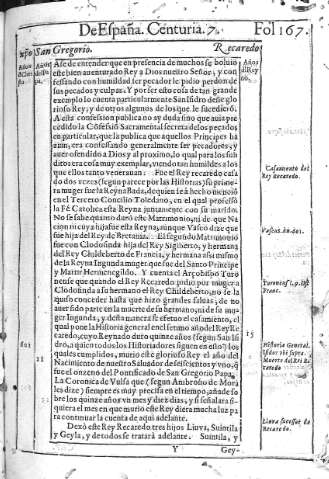 De España. Centuria. 7. Fol 167.
San Gregorio. Recaredo
Ase de entender que en presencia de muchos se boluio
este bien auenturado Rey a Dios nuestro Señor, y con-
fessando con humildad ser pecador le pidio perdon de
sus pecados y culpas. Y por ser esta cosa de tan grande
exemplo lo cuenta particularmente San Isidro deste glo
rioso Rey; y de otros algunos de los que le
A esta confession publica no ay duda sino que auia pre
cedido la Confesiõ Sacramental secreta de los pecados
en particular, que la publica que aquellos Principes ha
zian, era confessando generalmente ser pecadores, y a
uer ofendido a Dios y al proximo, lo qual para los sub
ditos era cosa muy exemplar, viendo tan humildes a los
que ellos tanto venerauan. Fue el Rey Recaredo casa
do dos vezes (segun parece por las Historias) su prime
ra muger fue la Reyna Bada, de quien se à hecho mencion
en el Tercero Concilio Toledano, en el qual professò
la Fè Catolica esta Reyna juntamente con su marido.
No se sabe quanto durò este Matrimonio, ni de que Na
cion ni cuya hija fue esta Reyna, aunque Vaseo dize que
fue hija del Rey de Bretania. El segundo Matrimonio
fue con Clodosinda hija del Rey Sigiberto, y hermana
del Rey Childeberto de Francia, y hermana assi mesmo
de la Reyna Ingunda muger que fue del Santo Principe
y Martir Hermenegildo. Y cuenta el Arçobispo Turo
nense que quando el Rey Recaredo pidio por muger a
Clodosinda a su hermano el Rey Childeberto, no se la
quiso conceder hasta que hizo grandes saluas, de no
auer sido parte en la muerte de su hermano, ni de su mu
ger Ingunda, y desta manera se efetuo el casamiento, el
qual pone la Historia general en el septimo año del Rey Re
caredo, cuyo Reynado duro quinze años (segun San Isi
dro, a quien todos los Historiadores siguen en esto) los
quales cumplidos, murio este glorioso Rey el año del
Nacimiento de nuestro Saluador de seiscientos y vno, q̃
fue el onzeno del Pontificado de San Gregorio Papa.
La Coronica de Vulsa que (segun Ambrosio de Mora
les dize) siempre es muy precisa en el tiempo, añade so
bre los quinze años vn mes y diez dias, y si señalara si
quiera el mes en que murio este Rey diera mucha luz pa
ra continuar la cuenta de aqui adelante.
Dexò este Rey Recaredo tres hijos Liuua, Suintila
y Geyla, y de todos se tratarà adelante. Suintila, y
Y Gey-
Casamiento del
Rey Recaredo.
15
601
11
Historia General.
Muerte del Rei Re
caredo